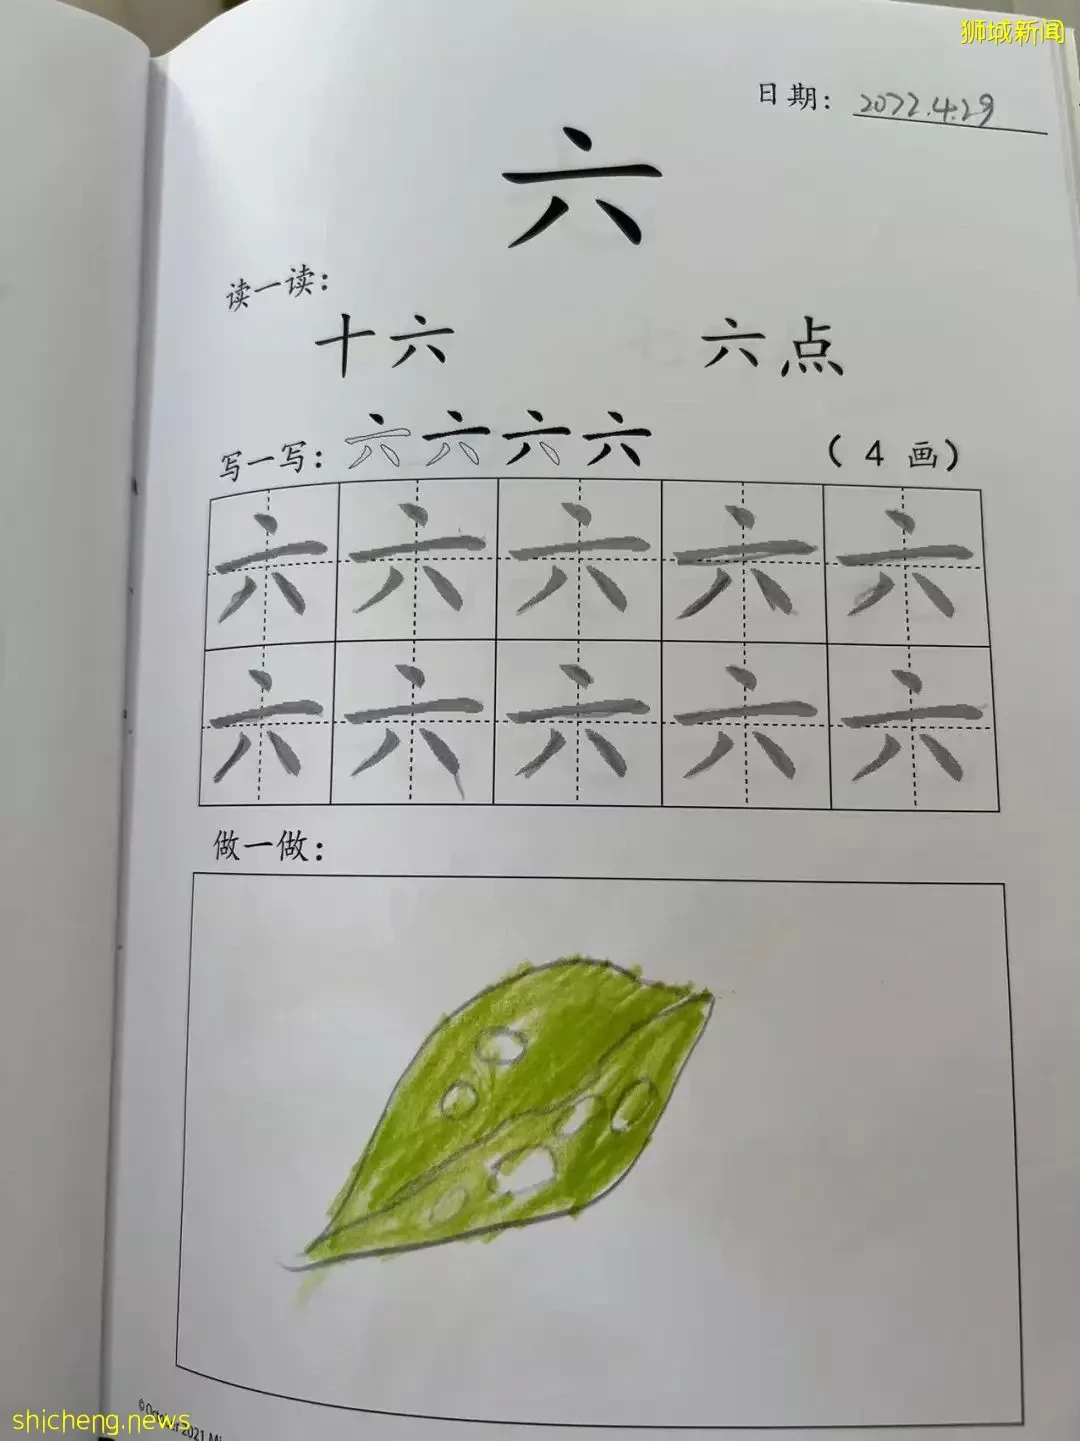 狮城新闻
日期: 2022.4.29
六
读一读:
十六 六点
写一写: 六 六 六 六 (4 画)
六 六 六 六 六
六 六 六 六 六
做一做:
© October 2021
shicheng.news